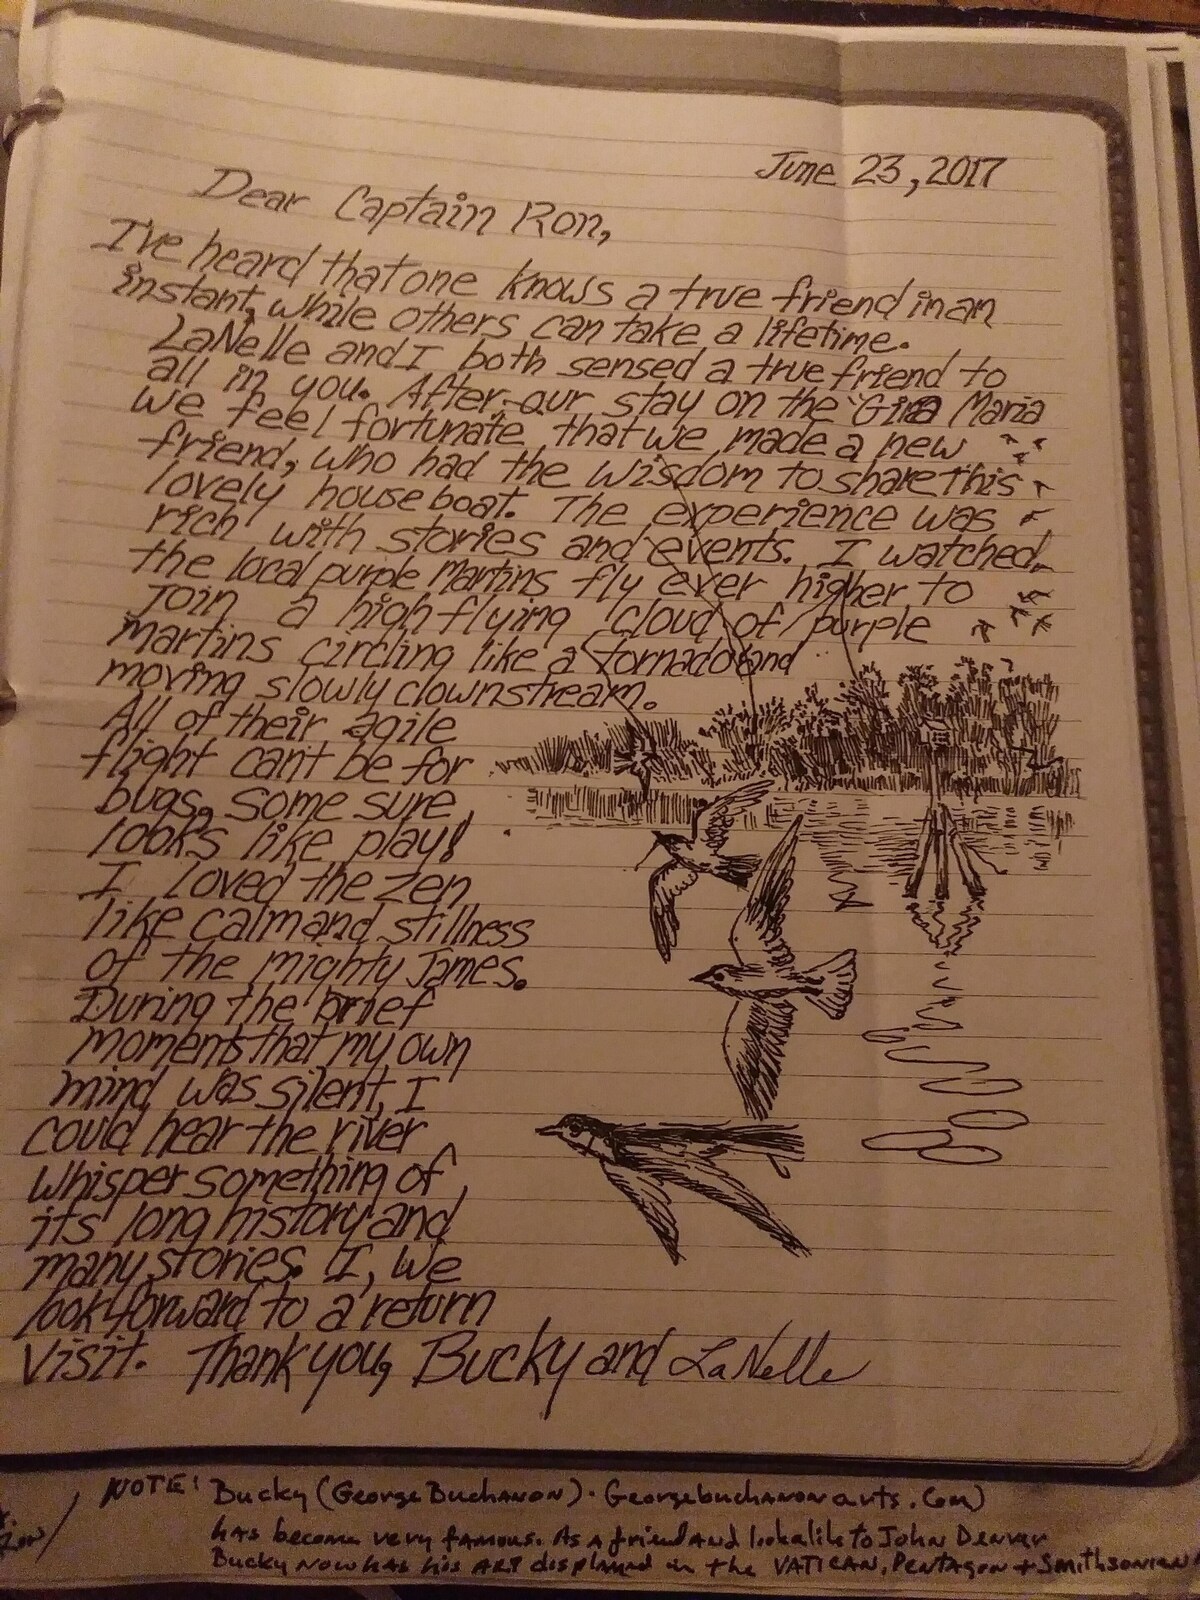 June 23, 2017
Dear Captain Ron,
I've heard that one knows a true friend in an
instant, while others can take a lifetime.
LaNelle and I both sensed a true friend to
all in you. After our stay on the "Gina Maria
we feel fortunate that we made a new
friend, who had the wisdom to share this
lovely houseboat. The experience was
rich with stories and events. I watched
the local purple Martins fly ever higher to
join a high flying cloud of purple
martins circling like a tornado and
moving slowly downstream.
All of their agile
flight can't be for
bugs, some sure
looks like play!
I loved the zen
like calm and stillness
of the mighty James.
During the brief
moments that my own
mind was silent, I
could hear the river
whisper something of
its long history and
many stories. I, we
look forward to a return
visit. Thank you, Bucky and LaNelle
NOTE: Bucky (George Buchanon). Georgebuchanonarts.com)
has become very famous. As a friend and lookalike to John Denver
Bucky now has his ART displayed in the VATICAN, Pentagon + Smithsonian